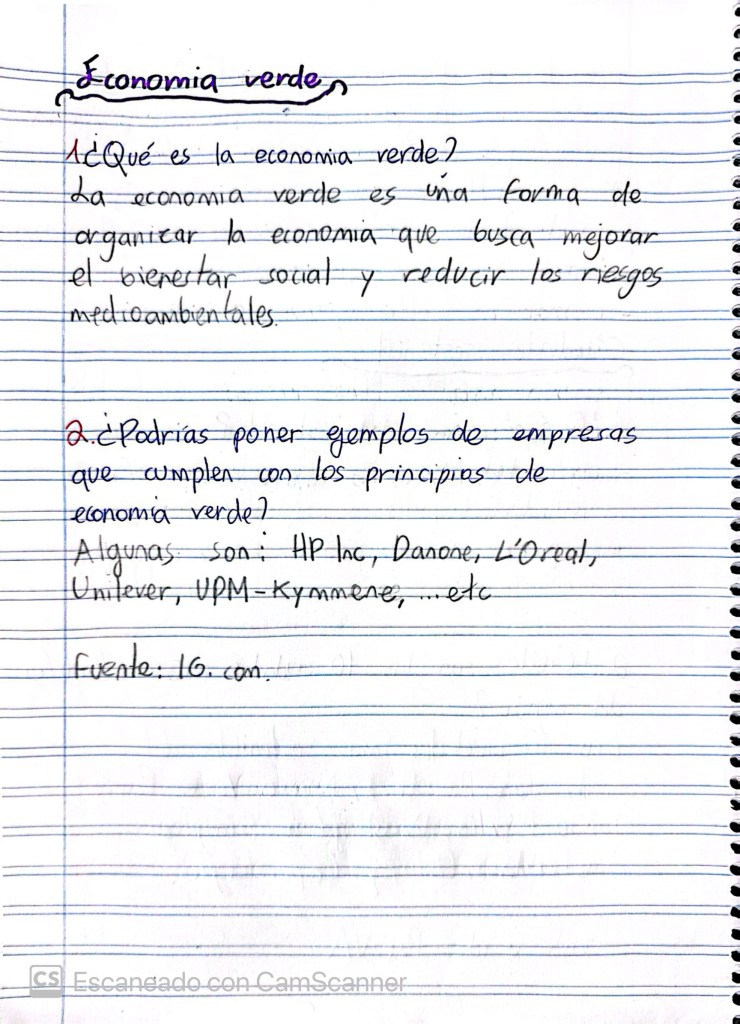 Economia verde
1¿Qué es la economia verde?
La economia verde es una forma de
organizar la economia que busca mejorar
el bienestar social y reducir los riesgos
medioambientales.
2.¿Podrías poner ejemplos de empresas
que cumplen con los principios de
economia verde?
Algunas son: HP Inc, Danone, L'Oreal,
Unilever, UPM-Kymmene, ...etc
Fuente: IG. con.
CS Escaneado con CamScanner